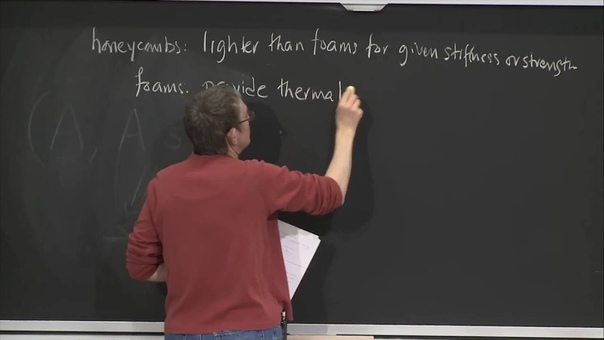 honeycombs: lighter than foams for given stiffness or strength
foams: provide thermal
(A, A